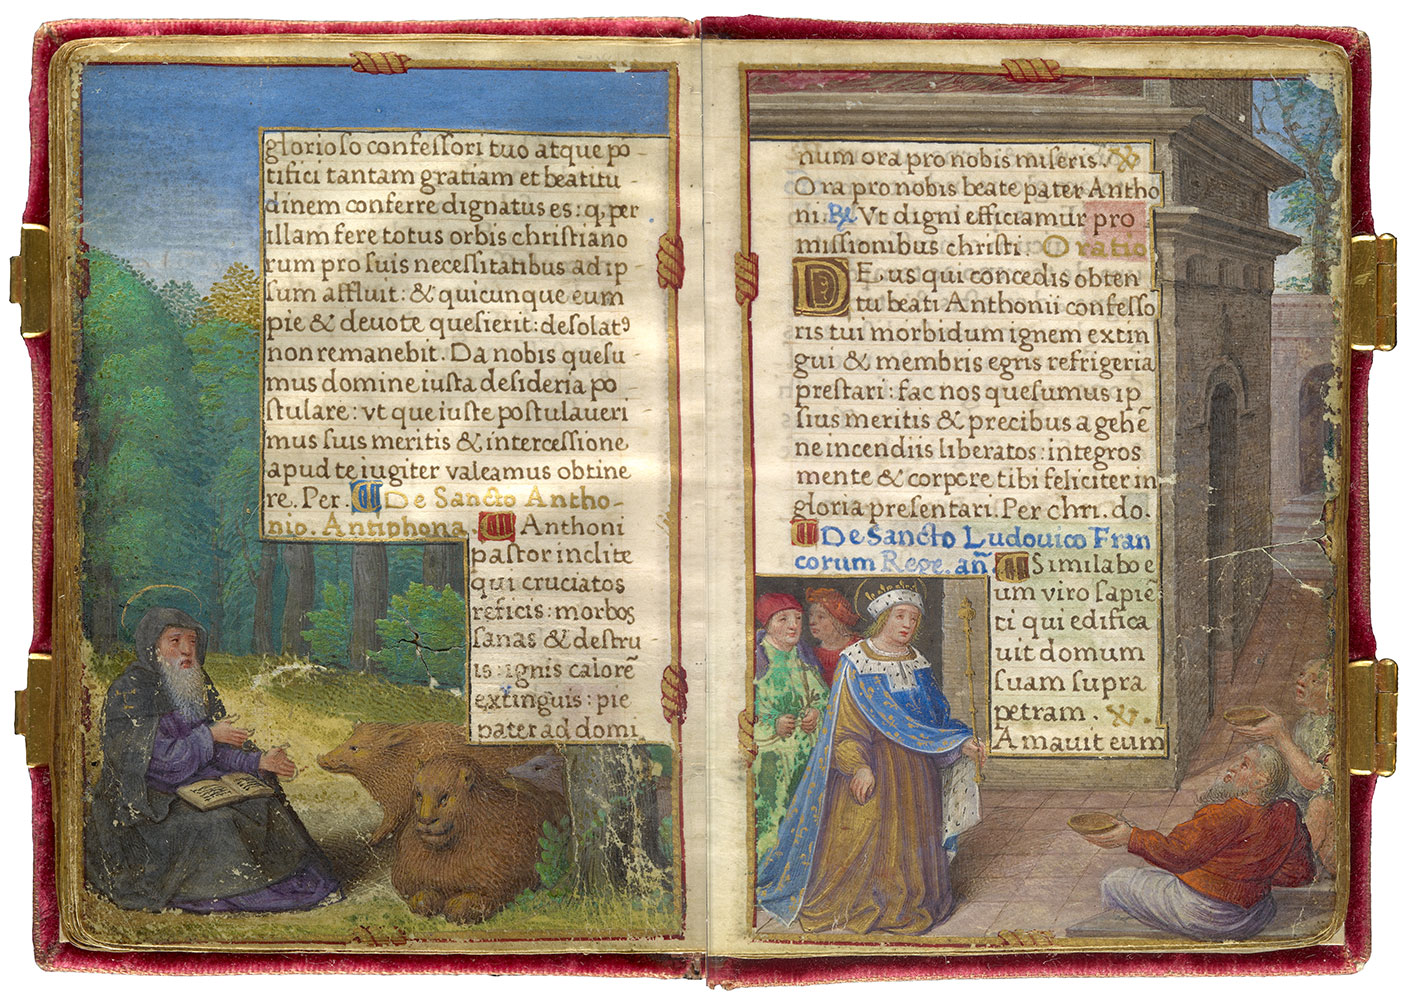 glorioso confessori tuo atque po-
tifici tantam gratiam et beatitu-
dinem conferre dignatus es: q, per
illam fere totus orbis christiano
rum pro suis necessitatibus ad ip-
sum affluit: & quicunque eum
pie & deuote quesierit: desolatꝰ
non remanebit. Da nobis quesu-
mus domine iusta desideria po-
stulare: vt que iuste postulaueri-
mus suis meritis & intercessione
apud te iugiter valeamus obtine
re. Per. De Sancto Antho-
nio. Antiphona. Anthoni
pastor inclite
qui cruciatos
reficis: morbos
sanas & destru
is: ignis calorē
extinguis: pie
pater ad domi
num ora pro nobis miseris. ℣
Ora pro nobis beate pater Antho
ni. ℟ Vt digni efficiamur pro
missionibus christi. Oratio
DEus qui concedis obten
tu beati Anthonii confesso
ris tui morbidum ignem extin
gui & membris egris refrigeria
prestari: fac nos quesumus ip
sius meritis & precibus a gehē
ne incendiis liberatos: integros
mente & corpore tibi feliciter in
gloria presentari. Per chri. do.
De Sancto Ludouico Fran
corum Rege. añ. Similabo e
um viro sapiē
ti qui edifica
uit domum
suam supra
petram. ℣.
Amauit eum